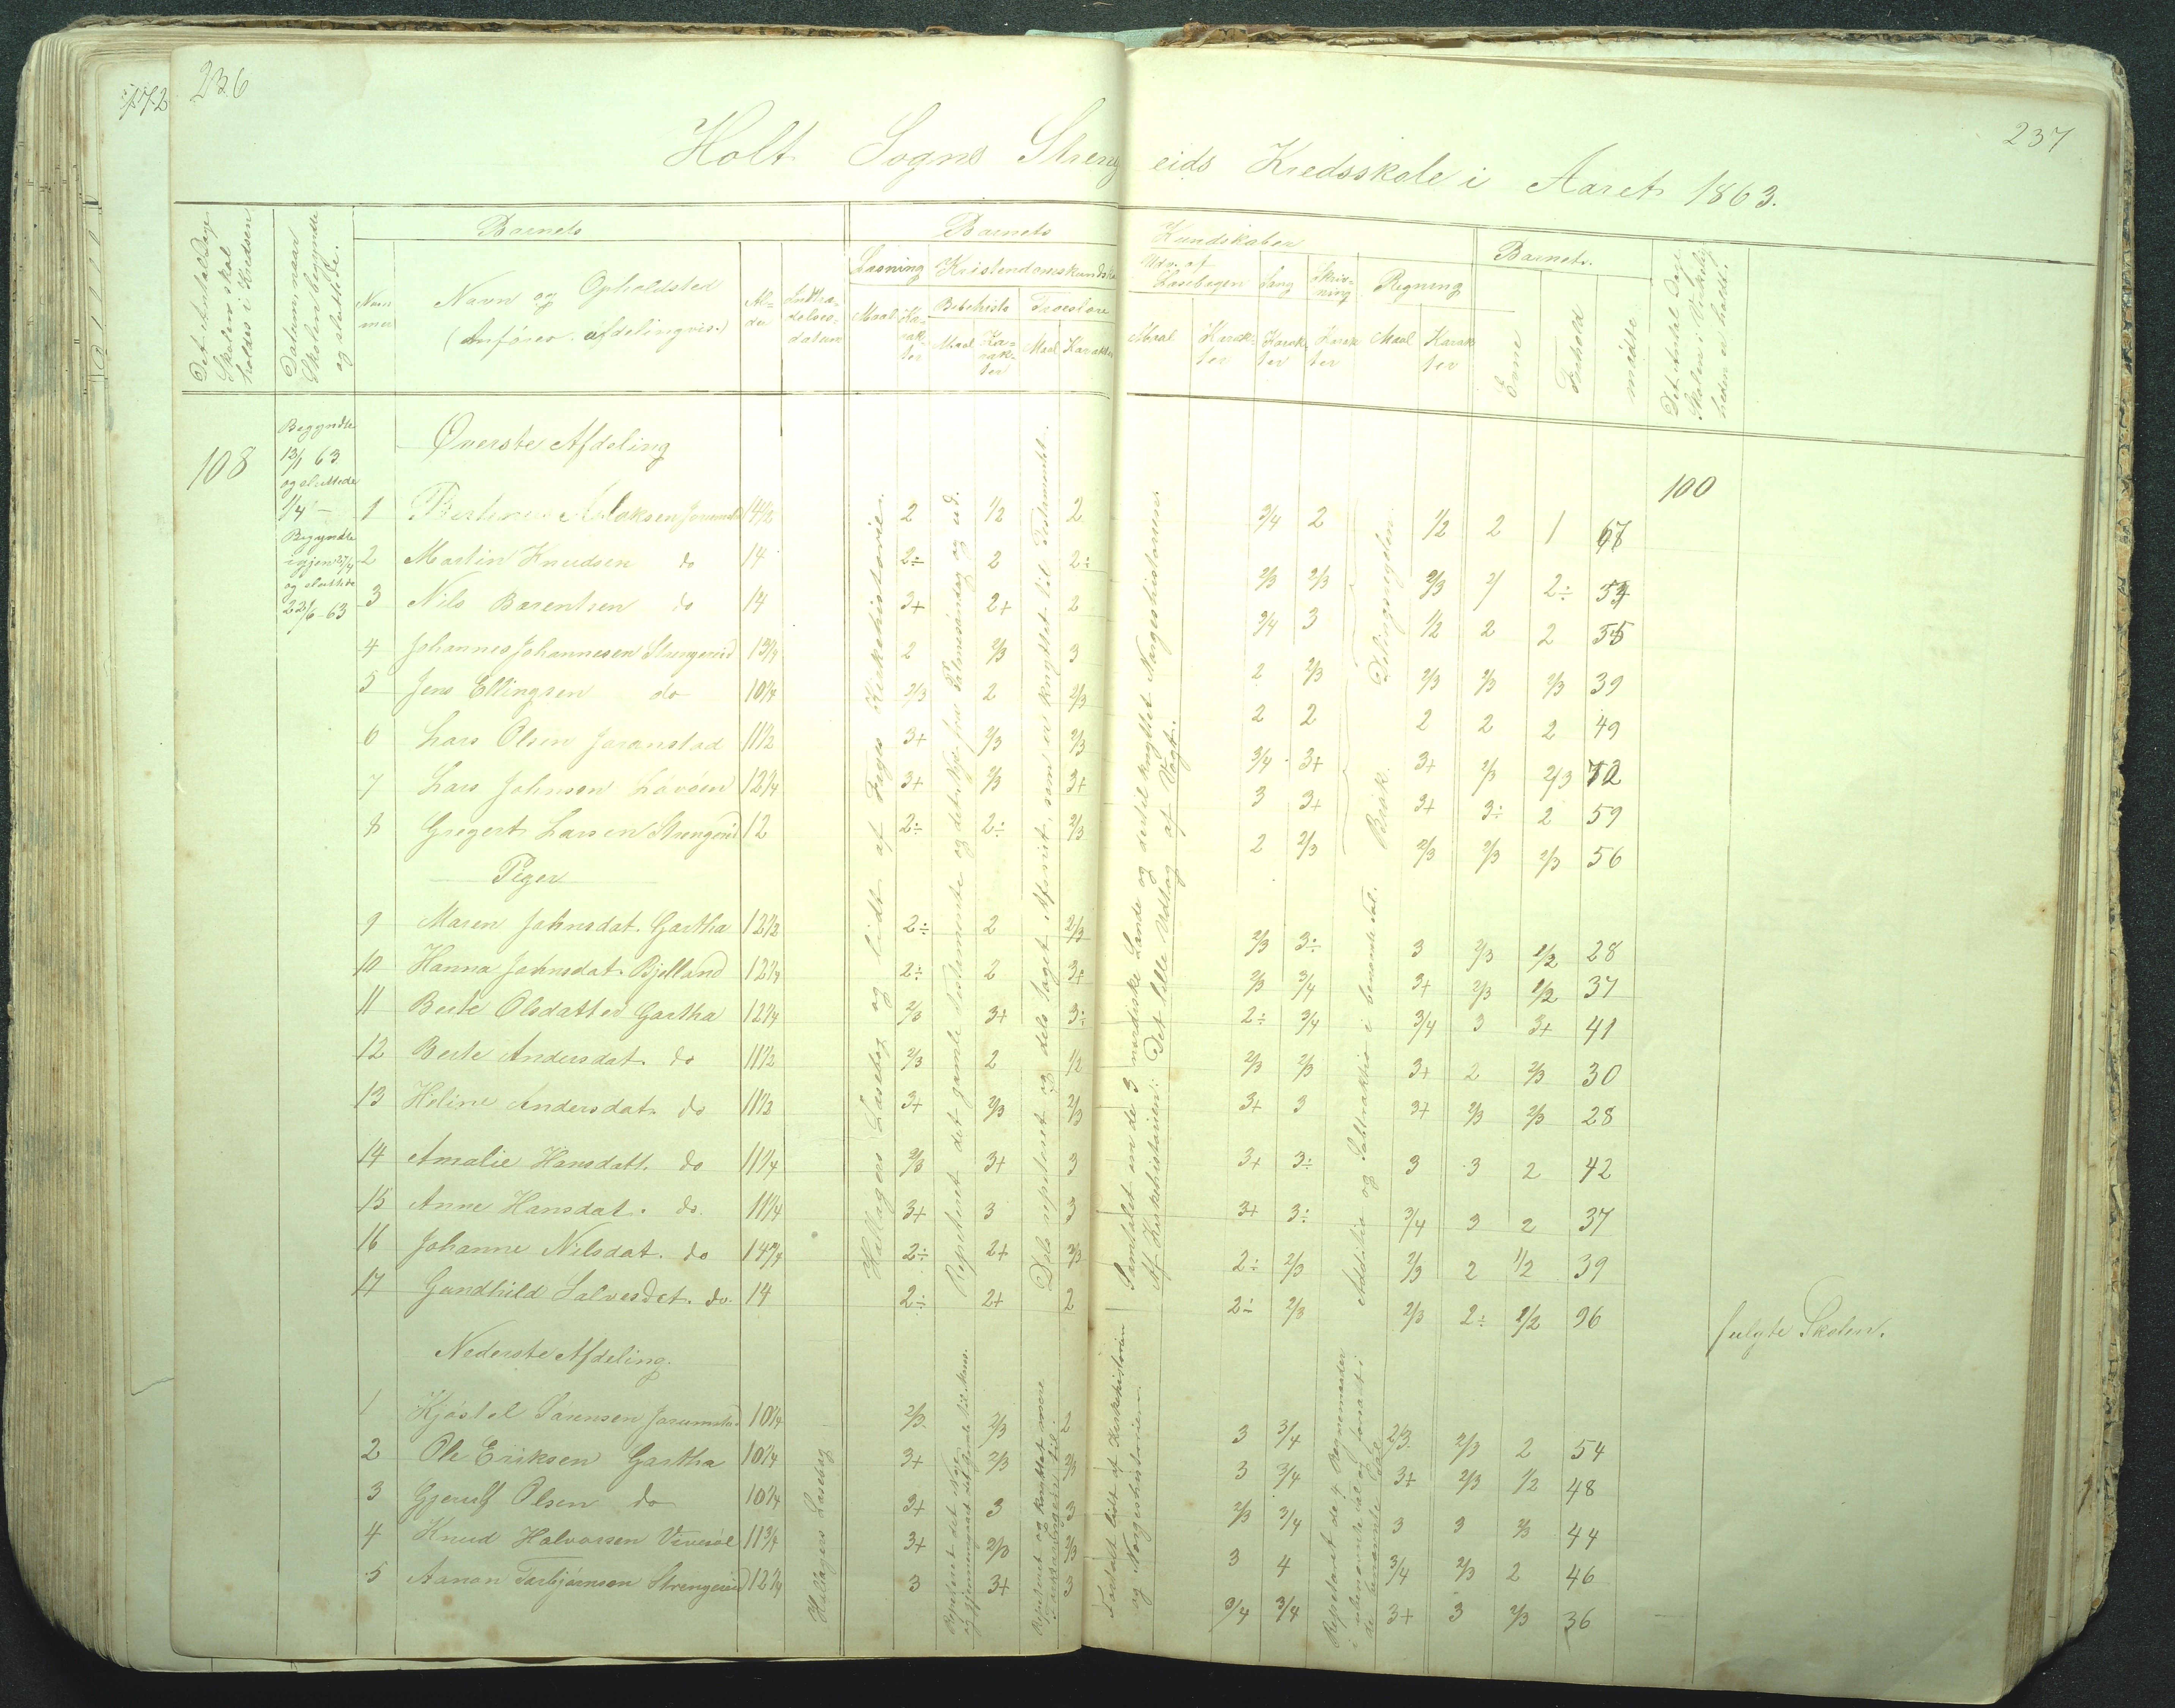 172
236
237
Holt Sogns Strengeids Kredsskole i Aaret 1863.
Det Antal Dage Skolen skal holdes i Kredsen
Datum naar Skolen begyndte og sluttede.
Barnets
Barnets
Kundskaber
Barnets.
Det Antal Dage Skolen i Virkeligheden er holdt.
Nummer
Navn og Opholdsted
(Anføres afdelingvis.)
Alder
Indtrædelsesdatum
Læsning
Kristendomskundskab
Udv. af Læsebogen
Sang
Skrivning
Regning
Bibelhistorie
Troeslære
Maal
Karakter
Maal
Karakter
Maal
Karakter
Maal
Karakter
Karakter
Karakter
Maal
Karakter
Evne
Forhold
mødte
108
Begyndte
12/1 63
og sluttede
1/4 —
Begyndte
igjen 27/4
og sluttede
22/6 - 63
100
Øverste Afdeling
1 Aslaksen 14 1/2 2 1/2 2 3/4 2 1/2 2 1 67
2 Martin Knudsen do 14 2÷ 2 2÷ 2/3 2/3 2/3 2÷
3 Nils Barentsen do 14 3+ 2+ 2 3/4 3 1/2 2 2 55
4 Johannes Johannesen Strengereid 13 1/4 2 2/3 3 2 2/3 2/3 2/3 2/3 39
5 Jens Ellingsen do 10 1/4 2/3 2 2/3 2 2 2 2 2 49
6 Lars Olsen 11 1/2 3+ 2/3 2/3 3/4 3+ 3+ 2/3 2/3 72
7 Lars Johnsen 12 1/4 3+ 2/3 3+ 3 3+ 3+ 3÷ 2 59
8 Gregert Larsen Strengereid 12 2÷ 2÷ 2/3 2 2/3 2/3 2/3 2/3 56
Piger
9 Maren Johnsdat. Gartha 12 1/2 2÷ 2 2/3 2/3 3÷ 3 2/3 1/2 28
10 Hanna Johnsdat. Bjelland 12 1/4 2÷ 2 3+ 2/3 3/4 3+ 2/3 1/2 37
11 Berte Olsdatter Gartha 12 1/4 2/3 3+ 3÷ 2÷ 3/4 3/4 3 3+ 41
12 Berte Andersdat. do 11 1/2 2/3 2 1/2 2/3 2/3 3+ 2 2/3 30
13 Heline Andersdat. do 11 1/2 3+ 2/3 2/3 3+ 3 3+ 2/3 2/3 28
14 Amalie Hansdatt. do 11 1/4 2/3 3+ 3 3+ 3÷ 3 3 2 42
15 Anne Hansdat. do. 11 1/4 3+ 3 3 3+ 3÷ 3/4 3 2 37
16 Johanne Nilsdat. do 14 3/4 2÷ 2+ 2/3 2÷ 2/3 2/3 2 1/2 39
17 Gundhild Salvesdat. do. 14 2÷ 2+ 2 2÷ 2/3 2/3 2÷ 1/2 96 fulgte Skolen.
Hallagers Læsebog og lidt af Fugls Kirkehistorie.
Repeteret det gamle Testamente og det Nye fra Palmesøndag og ud.
Dels repeteret og dels taget Afsnit, som er knyttet til Testamentet.
Samtalet om de 3 nordiske Lande og dertil knyttet Norgeshistorien
Af Kirkehistorien: Det lille Udtog af Vogt.
Delingsregelen.
Brøk.
Additio og Subtraktio i benævnte Tal.
Nederste Afdeling.
1 Kjøstel Sørensen 10 1/4 2/3 2/3 2 3 3/4 2/3 2/3 2 54
2 Ole Eriksen Gartha 10 1/4 3+ 2/3 2/3 3 3/4 3+ 2/3 1/2 48
3 Gjerulf Olsen do 10 1/4 3+ 3 3 2/3 3/4 3 3 2/3 44
4 Knud Halvorsen 11 3/4 3+ 2/3 2/3 3 4 3/4 2/3 2 46
5 Aanon Torbjørnsen Strengereid 12 3/4 3 3+ 3 3/4 3/4 3+ 3 2/3 36
Hallagers Læsebog
Repeteret det Nye og gjennemgaaet det gamle
Repeteret og knyttet mere
Fortalt lidt af Kirkehistorien
og Norgeshistorien
Repeteret de 4 Regnemaader
i ubenævnte Tal og forsøgt i
de benævnte Tal